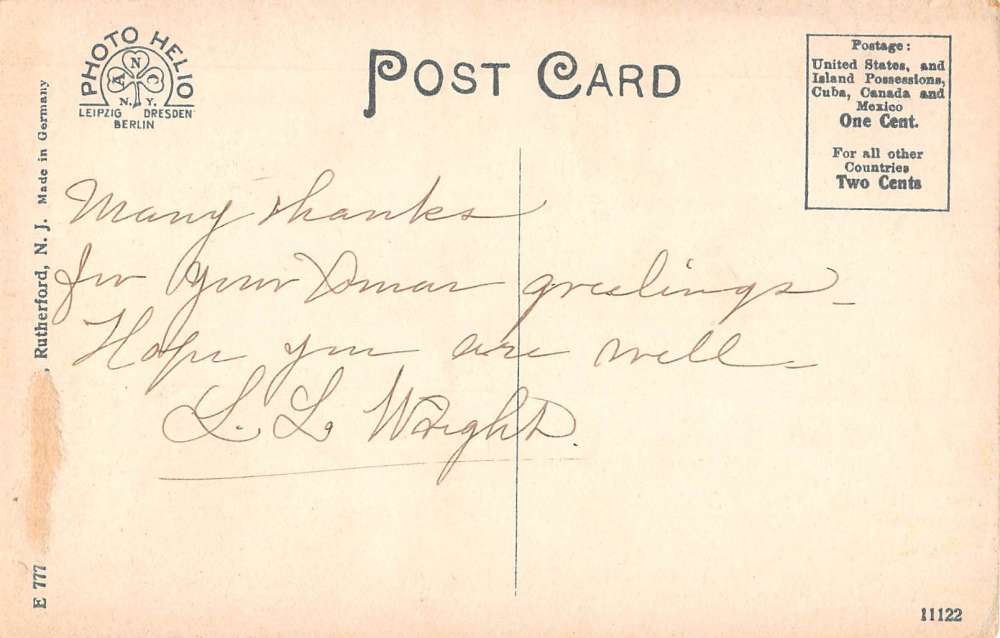 PHOTO HELIO
A N C
N. Y.
LEIPZIG DRESDEN
BERLIN
POST CARD
Postage:
United States, and
Island Possessions,
Cuba, Canada and
Mexico
One Cent.
For all other
Countries
Two Cents
Many thanks
for your Xmas greetings_
Hope you are well_
L. L. Wright.
E 777 , Rutherford, N. J. Made in Germany
11122